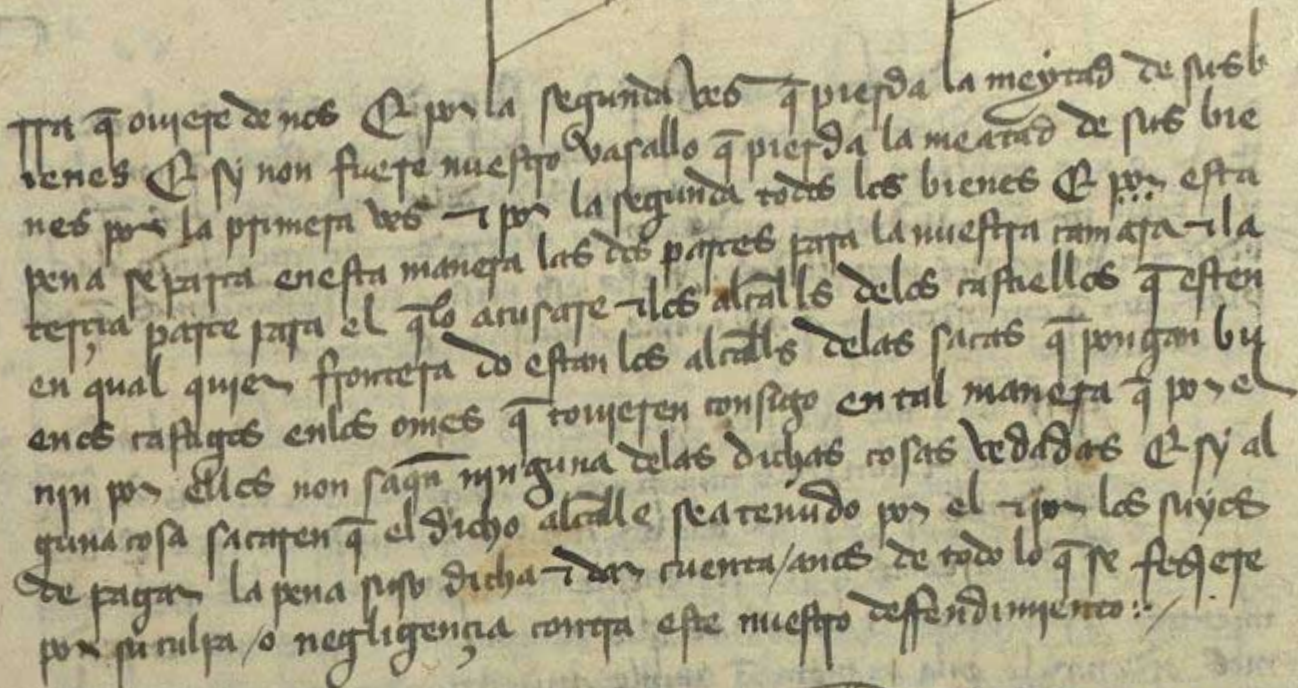 rra q̃ ouiere de nos E por la segunda ves q̃ pierda la meytad de sus b
ienes E sy non fuere nuestro vasallo q̃ pierda la meatad de sus bie
nes por la primera ves τ por la segunda todos los bienes E por esta
pena se parta en esta manera las dos partes para la nuestra camara τ la
terçia parte para el q̃ lo acusare τ los alcalls delos castiellos q̃ esten
en qual quier frontera do estan los alcalls delas sacas q̃ pongan bu
enos castigos enlos omes q̃ touieren consigo en tal manera q̃ por el
nin por ellos non saqũ ninguna delas dichas cosas vedadas E sy al
guna cosa sacaren q̃ el dicho alcalle sea tenudo por el τ por los suyos
de pagar la pena suso dicha τ dar cuenta / anos de todo lo q̃ se fesiere
por su culpa / o negligençia contra este nuestro deffendimiento :· /